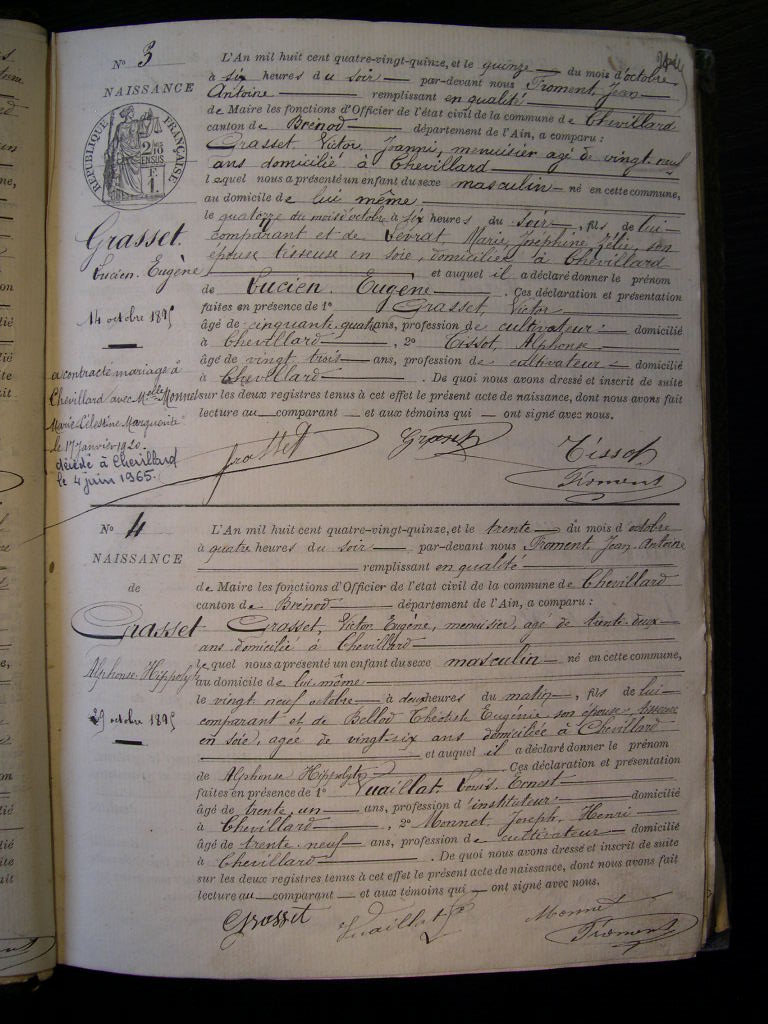 N° 3
NAISSANCE
RÉPUBLIQUE FRANÇAISE
2/10 EN SUS
F. 1.
Grasset.
Lucien. Eugène
14 octobre 1895
a contracté mariage à
Chevillard avec Melle Monnet
Marie Célestine Marguerite
le 17 janvier 1920.
décédé à Chevillard
le 4 juin 1965.
L'An mil huit cent quatre-vingt-quinze, et le quinze du mois d'octobre
à six heures du soir par-devant nous Froment Jean
Antoine remplissant en qualité
de Maire les fonctions d'Officier de l'état civil de la commune de Chevillard
canton de Brénod département de l'Ain, a comparu :
Grasset Victor, Joanni, menuisier agé de vingt-neuf
ans domicilié à Chevillard
lequel nous a présenté un enfant du sexe masculin né en cette commune,
au domicile de lui même,
le quatorze du mois d'octobre à six heures du soir, fils de lui-
comparant et de Levrat, Marie, Joséphine, Zélie, son
épouse tisseuse en soie, domiciliée à Chevillard
et auquel il a déclaré donner le prénom
de Lucien. Eugène. Ces déclaration et présentation
faites en présence de 1° Grasset, Victor
âgé de cinquante quatre ans, profession de cultivateur domicilié
à Chevillard, 2° Tissot, Alphonse
âgé de vingt trois ans, profession de cultivateur domicilié
à Chevillard. De quoi nous avons dressé et inscrit de suite
sur les deux registres tenus à cet effet le présent acte de naissance, dont nous avons fait
lecture au comparant et aux témoins qui ont signé avec nous.
Grasset Tissot
Froment
N° 4
NAISSANCE
de
Grasset
Alphonse Hippolyte
29 octobre 1895
L'An mil huit cent quatre-vingt-quinze, et le trente du mois d'octobre
à quatre heures du soir par-devant nous Froment, Jean-Antoine
remplissant en qualité
de Maire les fonctions d'Officier de l'état civil de la commune de Chevillard
canton de Brénod département de l'Ain, a comparu :
Grasset, Victor Eugène, menuisier, agé de trente-deux
ans domicilié à Chevillard
lequel nous a présenté un enfant du sexe masculin né en cette commune,
au domicile de lui même
le vingt neuf octobre à deux heures du matin, fils de lui-
comparant et de Bellod Théotiste Eugénie son épouse, tisseuse
en soie, agée de vingt-six ans domiciliée à Chevillard
et auquel il a déclaré donner le prénom
de Alphonse Hippolyte. Ces déclaration et présentation
faites en présence de 1° Vuaillat Louis Ernest
âgé de trente un ans, profession d'instituteur domicilié
à Chevillard, 2° Monnet, Joseph, Henri
âgé de trente-neuf ans, profession de cultivateur domicilié
à Chevillard. De quoi nous avons dressé et inscrit de suite
sur les deux registres tenus à cet effet le présent acte de naissance, dont nous avons fait
lecture au comparant et aux témoins qui ont signé avec nous.
Grasset Vuaillat Monnet
Froment